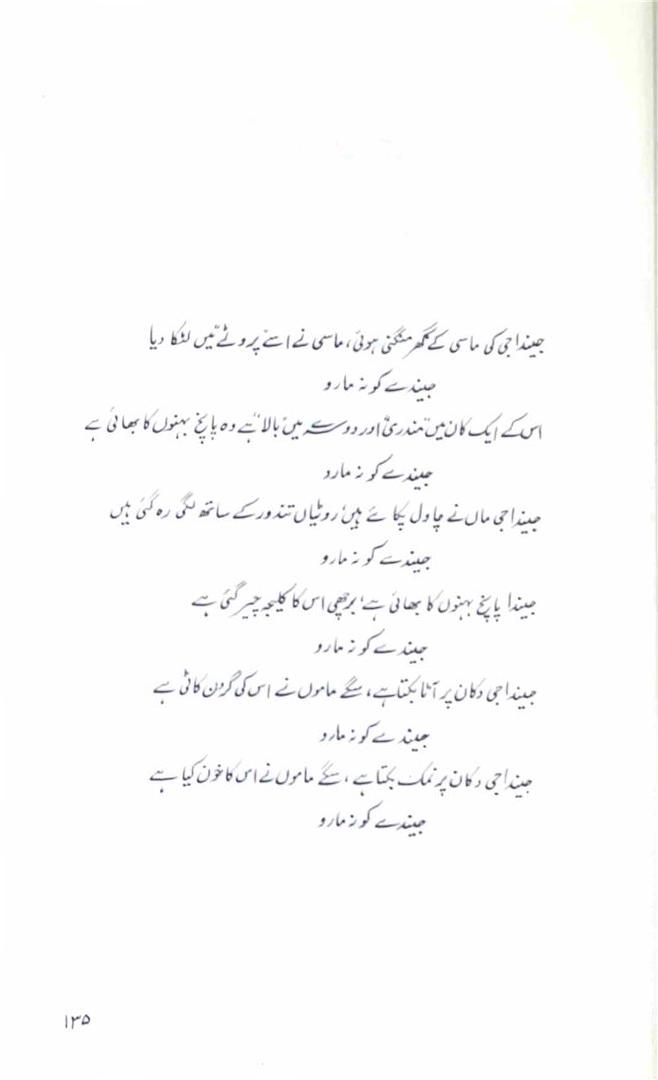 جیندا جی کی ماسی کے گھر منگنی ہوئی، ماسی نے اسے پروٹے میں لٹکا دیا
جیندے کو نہ مارو
اس کے ایک کان میں "مندری" اور دوسرے میں "بالا" ہے وہ پانچ بہنوں کا بھائی ہے
جیندے کو نہ مارو
جیندا جی ماں نے چاول پکائے ہیں، روٹیاں تندور کے ساتھ لگی رہ گئی ہیں
جیندے کو نہ مارو
جیندا پانچ بہنوں کا بھائی ہے، برچھی اس کا کلیجہ چیر گئی ہے
جیندے کو نہ مارو
جیندا جی دکان پر آٹا بکتا ہے، سگے ماموں نے اس کی گردن کاٹی ہے
جیندے کو نہ مارو
جیندا جی دکان پر نمک بکتا ہے، سگے ماموں نے اس کا خون کیا ہے
جیندے کو نہ مارو
۱۳۵